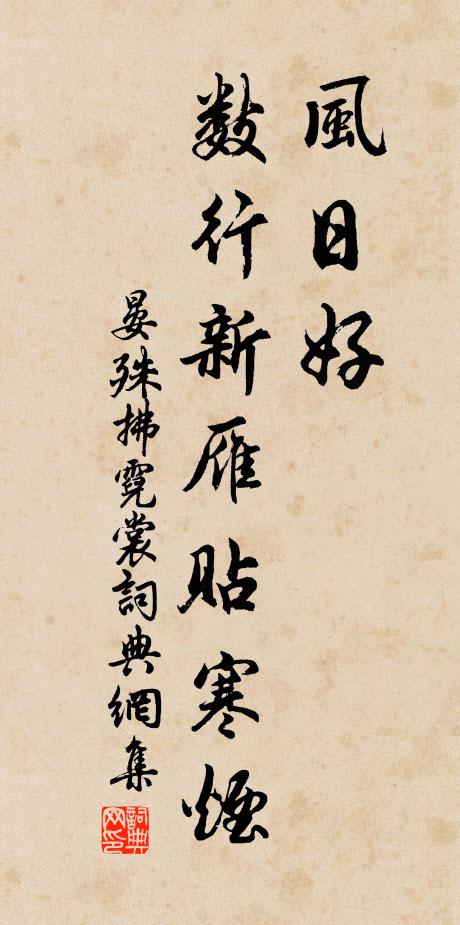 風日好
數行新雁貼寒煙
晏殊拂霓裳詞典網集
詞典
網印